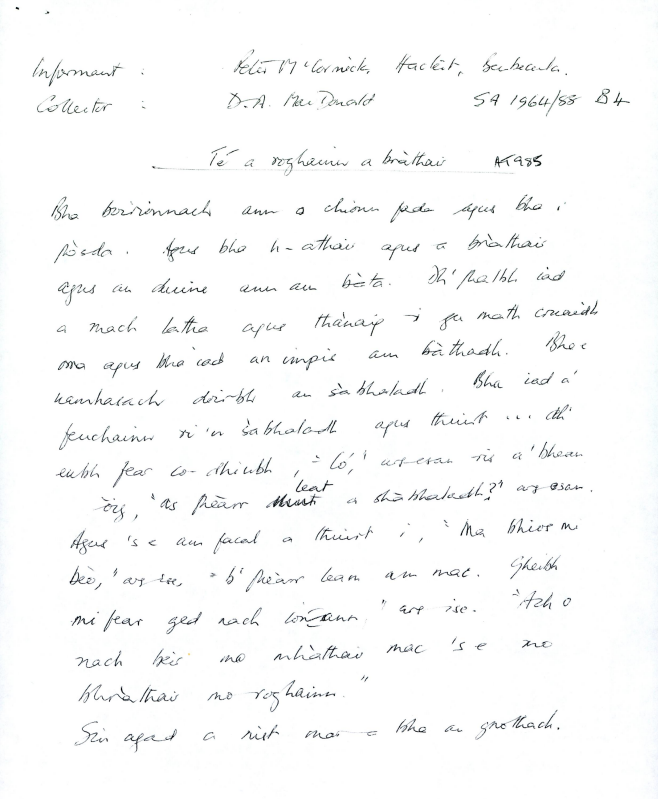 Informant : Peter McCormick, Hacleit, Benbecula.
Collector : D.A. MacDonald SA 1964/88 B4
Té a roghainn a bràthair AT985
Bha boirionnach ann o chionn fada agus bha i
pòsda. Agus bha h-athair agus a bràthair
agus an duine ann am bàta. Dh' fhalbh iad
a mach latha agus thànaig i gu math cruaidh
orra agus bha iad an impis am bàthadh. Bha e
namhasach doirbh an sàbhaladh. Bha iad a'
feuchainn ri 'n sàbhaladh agus thuirt ... dh'
eubh fear co-dhiubh, "Có," ars esan ris a' bhean
òig, "as fheàrr leat a shàbhaladh?" ars esan.
Agus 's e am facal a thuirt i, "Ma bhios mi
beò," ars ise, "b' fheàrr leam am mac. Gheibh
mi fear ged nach ionann," ars ise. "Ach o
nach beir mo mhàthair mac 's e mo
bhràthair mo roghainn."
Sin agad a rist mar a bha an gnothach.